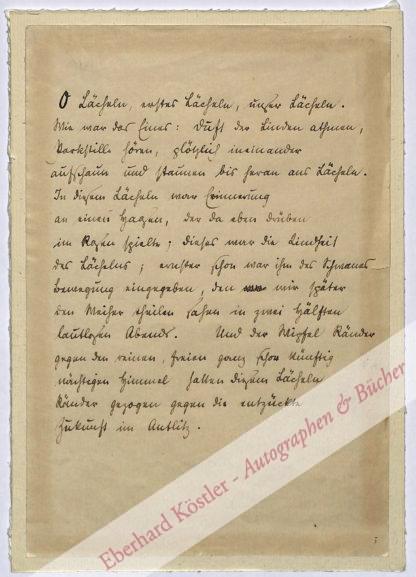 O Lächeln, erstes Lächeln, unser Lächeln.
Wie war das Eines: Duft der Linden athmen,
Parkstille hören, plötzlich ineinander
aufschaun und staunen bis heran ans Lächeln.
In diesem Lächeln war Erinnerung
an einen Hasen, der da eben drüben
im Rasen spielte; dieses war die Kindheit
des Lächelns; ernster schon war ihm des Schwanes
Bewegung eingegeben, den wir später
den Weiher theilen sahen in zwei Hälften
lautlosen Abends. Und der Wipfel Ränder
gegen den reinen, freien ganz schon künftig
nächtigen Himmel hatten diesem Lächeln
Ränder gezogen gegen die entzückte
Zukunft im Antlitz.
Eberhard Köstler - Autographen & Bücher